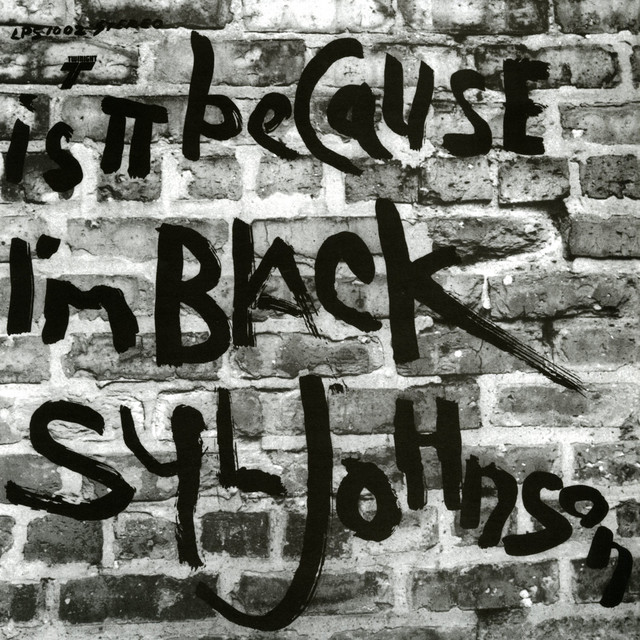 LPS1002 STEREO
TWINIGHT
is iT beCaUSE
i'm BLacK
SYL JoHnSon